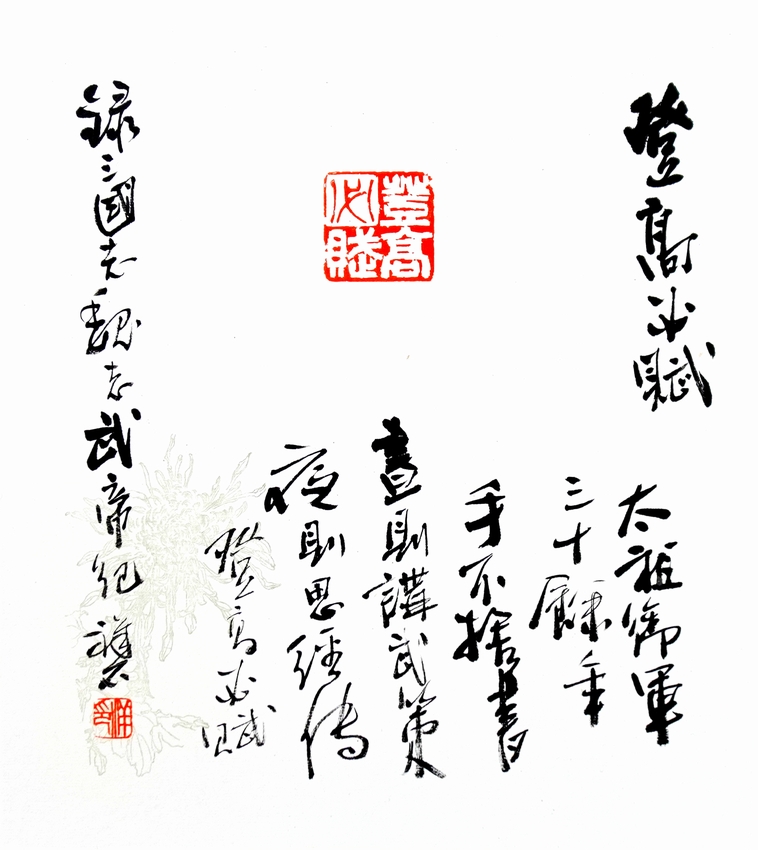 登高必賦
登高必賦
太祖御軍
三十餘年
手不捨書
晝則講武策
夜則思經傳
登高必賦
録三國志魏志武帝紀